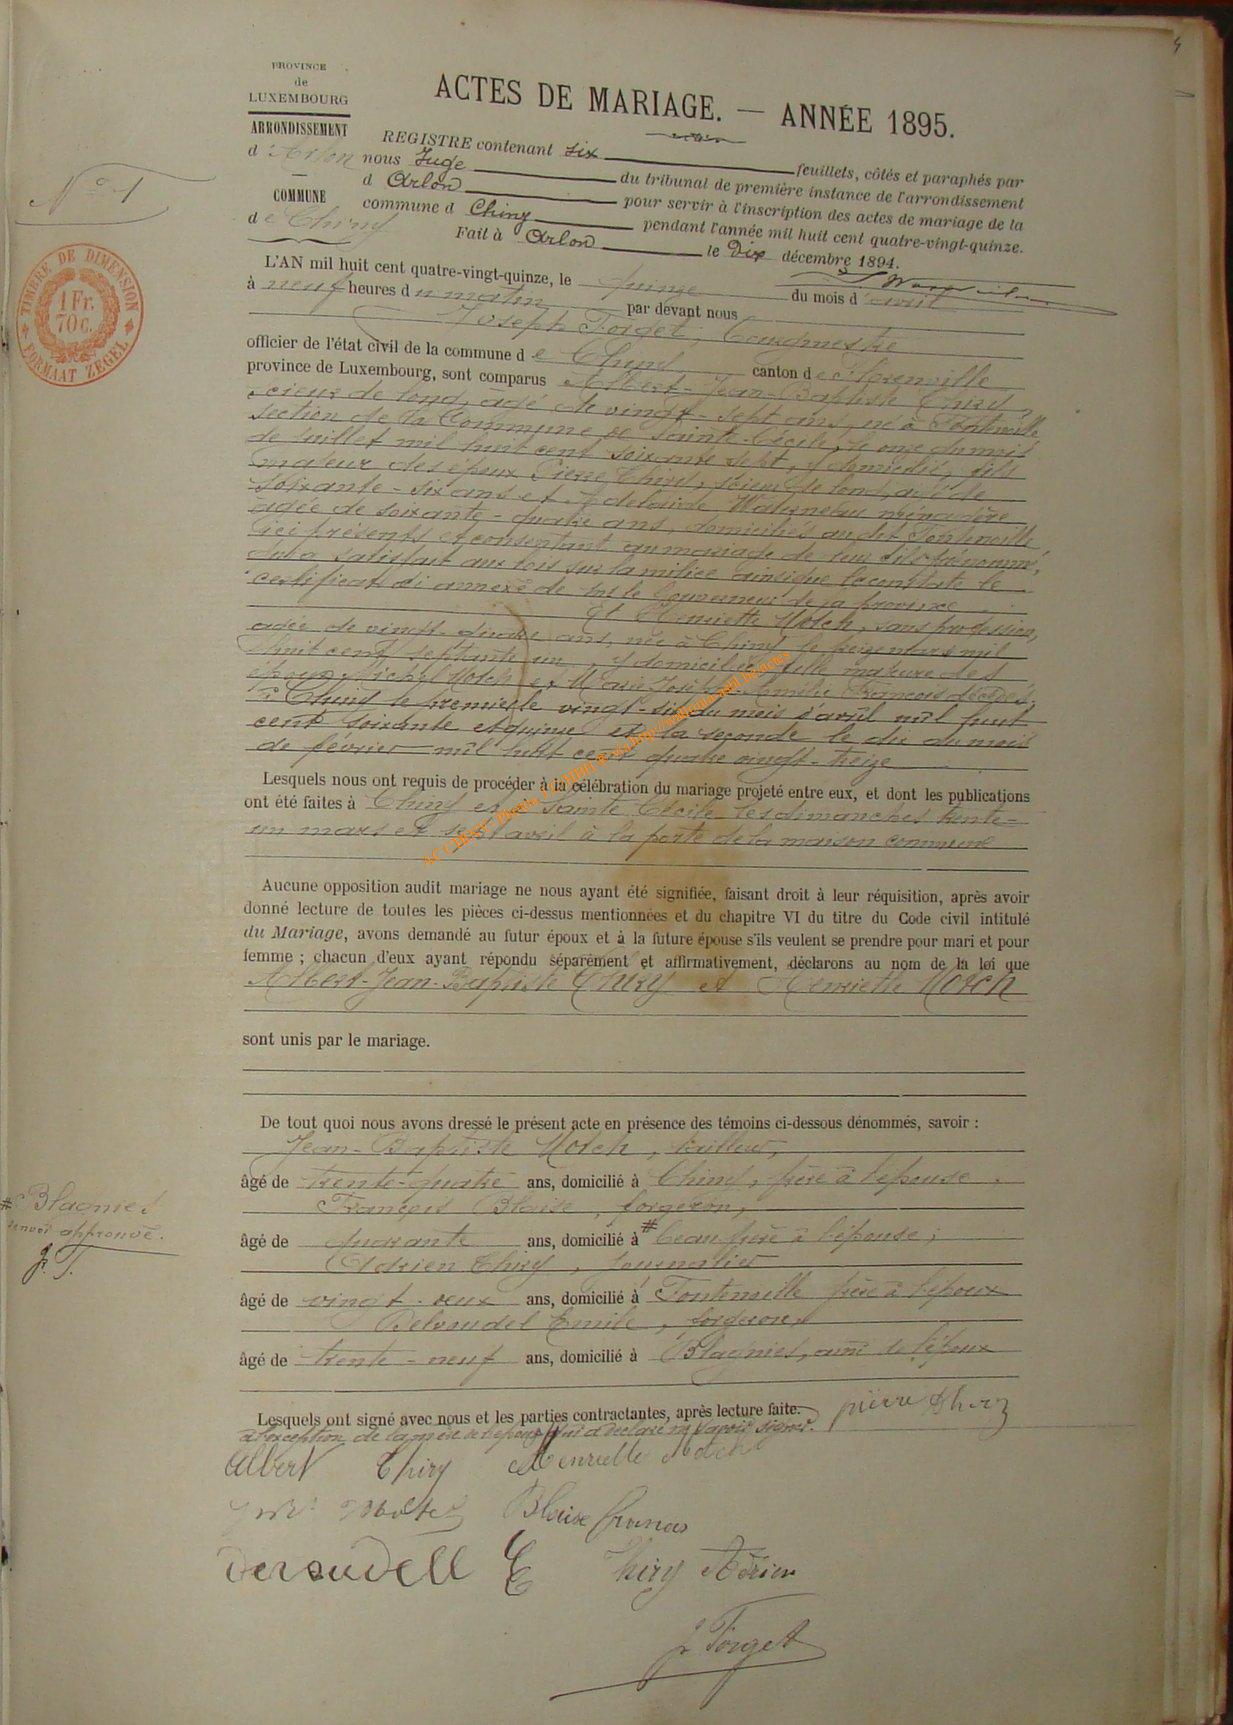 PROVINCE
de
LUXEMBOURG
ARRONDISSEMENT
d'Arlon
COMMUNE
de Chiny
N° 1
TIMBRE DE DIMENSION
1 Fr.
70 c.
FORMAAT ZEGEL
ACTES DE MARIAGE. — ANNÉE 1895.
REGISTRE contenant six feuillets, côtés et paraphés par
nous Juge du tribunal de première instance de l'arrondissement
d Arlon pour servir à l'inscription des actes de mariage de la
commune d Chiny pendant l'année mil huit cent quatre-vingt-quinze.
Fait à Arlon le Dix décembre 1894.
L'AN mil huit cent quatre-vingt-quinze, le quinze du mois d'avril
à neuf heures du matin par devant nous
Joseph Forget, Bourgmestre
officier de l'état civil de la commune de Chiny canton de Florenville
province de Luxembourg, sont comparus Albert-Jean-Baptiste Thiry,
scieur de long, âgé de vingt-sept ans, né à Fontenoille
section de la Commune de Sainte-Cécile, le onze du mois
de juillet mil huit cent soixante sept, y domicilié, fils
majeur des époux Pierre Thiry, scieur de long, âgé de
soixante-six ans et Adelaïde ménagère
âgée de soixante-quatre ans, domiciliés au dit Fontenoille
ici présents et consentant au mariage de leur fils prénommé,
qui a satisfait aux lois sur la milice ainsi que le constate le
certificat ci annexé de Mr le Gouverneur de la province
Et Henriette Motch, sans profession,
âgée de vingt-quatre ans, née à Chiny le mars mil
huit cent septante un, y domiciliée, fille majeure des
époux Michel Motch et Marie Josèphe Amélie François décédés
à Chiny le premier le vingt-six du mois d'avril mil huit
cent soixante et quinze et la seconde le dix du mois
de février mil huit cent quatre vingt-treize
Lesquels nous ont requis de procéder à la célébration du mariage projeté entre eux, et dont les publications
ont été faites à Chiny et à Sainte Cécile les dimanches trente-
un mars et sept avril à la porte de la maison commune
Aucune opposition audit mariage ne nous ayant été signifiée, faisant droit à leur réquisition, après avoir
donné lecture de toutes les pièces ci-dessus mentionnées et du chapitre VI du titre du Code civil intitulé
du Mariage, avons demandé au futur époux et à la future épouse s'ils veulent se prendre pour mari et pour
femme ; chacun d'eux ayant répondu séparément et affirmativement, déclarons au nom de la loi que
Albert-Jean-Baptiste Thiry et Henriette Motch
sont unis par le mariage.
De tout quoi nous avons dressé le présent acte en présence des témoins ci-dessous dénommés, savoir :
Jean-Baptiste Motch, tailleur,
âgé de trente-quatre ans, domicilié à Chiny, frère à l'épouse,
François Blaise, forgeron,
âgé de quarante ans, domicilié à # beau frère à l'épouse ;
Adrien Thiry, journalier
âgé de vingt-deux ans, domicilié à Fontenoille frère à l'époux
Emile, forgeron,
âgé de trente-neuf ans, domicilié à Blagnies, ami de l'époux
# Blagnies
renvoi approuvé.
J. F.
Lesquels ont signé avec nous et les parties contractantes, après lecture faite.
à l'exception de la mère de l'époux qui a déclaré ne savoir signer.
pierre thiry
Albert Thiry Henriette Motch
Motch Blaise françois
E Thiry Adrien
J Forget